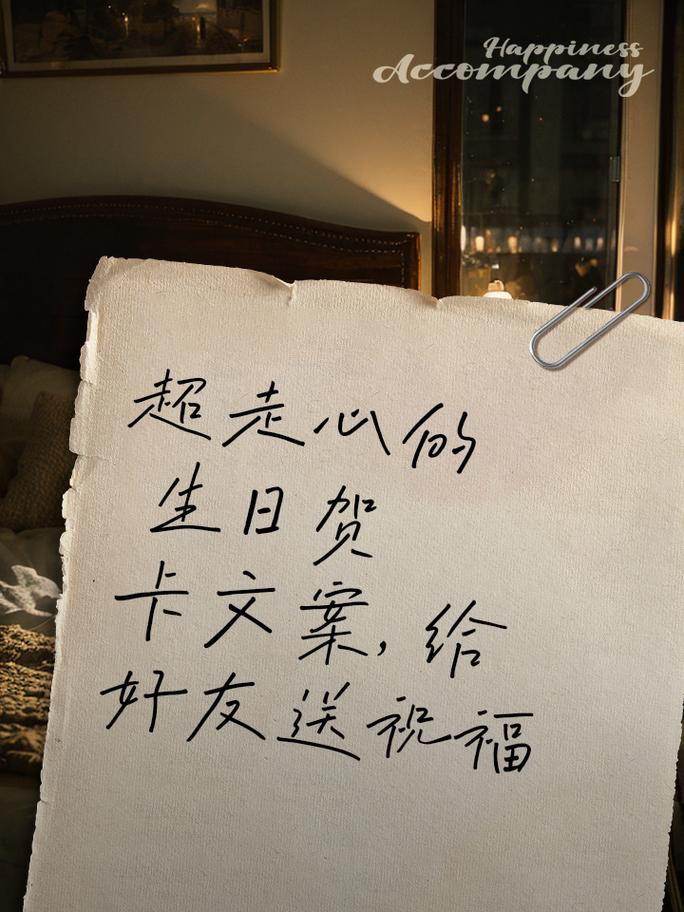 Happiness
Accompany
超走心的
生日贺
卡文案,给
好友送祝福